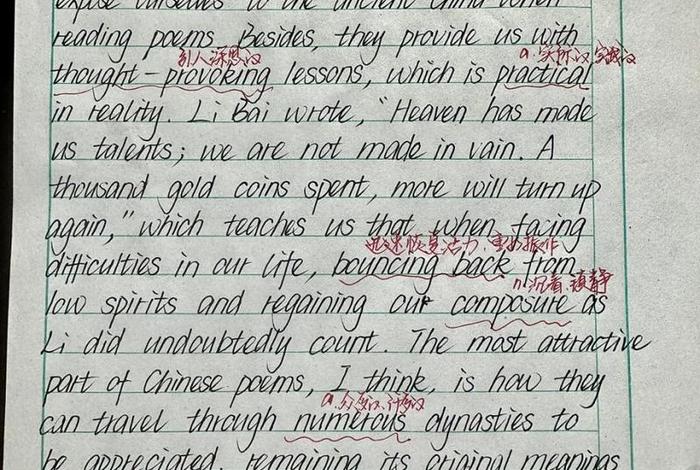 expose ourselves to the ancient China when
reading poems. Besides, they provide us with
引人深思的
thought-provoking lessons, which is practical
in reality. Li Bai wrote, "Heaven has made
us talents; we are not made in vain. A
thousand gold coins spent, more will turn up
again," which teaches us that when facing
迅速恢复活力,重新振作
difficulties in our life, bouncing back from
n.沉着,镇静
low spirits and regaining our composure as
Li did undoubtedly count. The most attractive
part of Chinese poems, I think, is how they
can travel through numerous dynasties to
be appreciated, remaining its original meanings